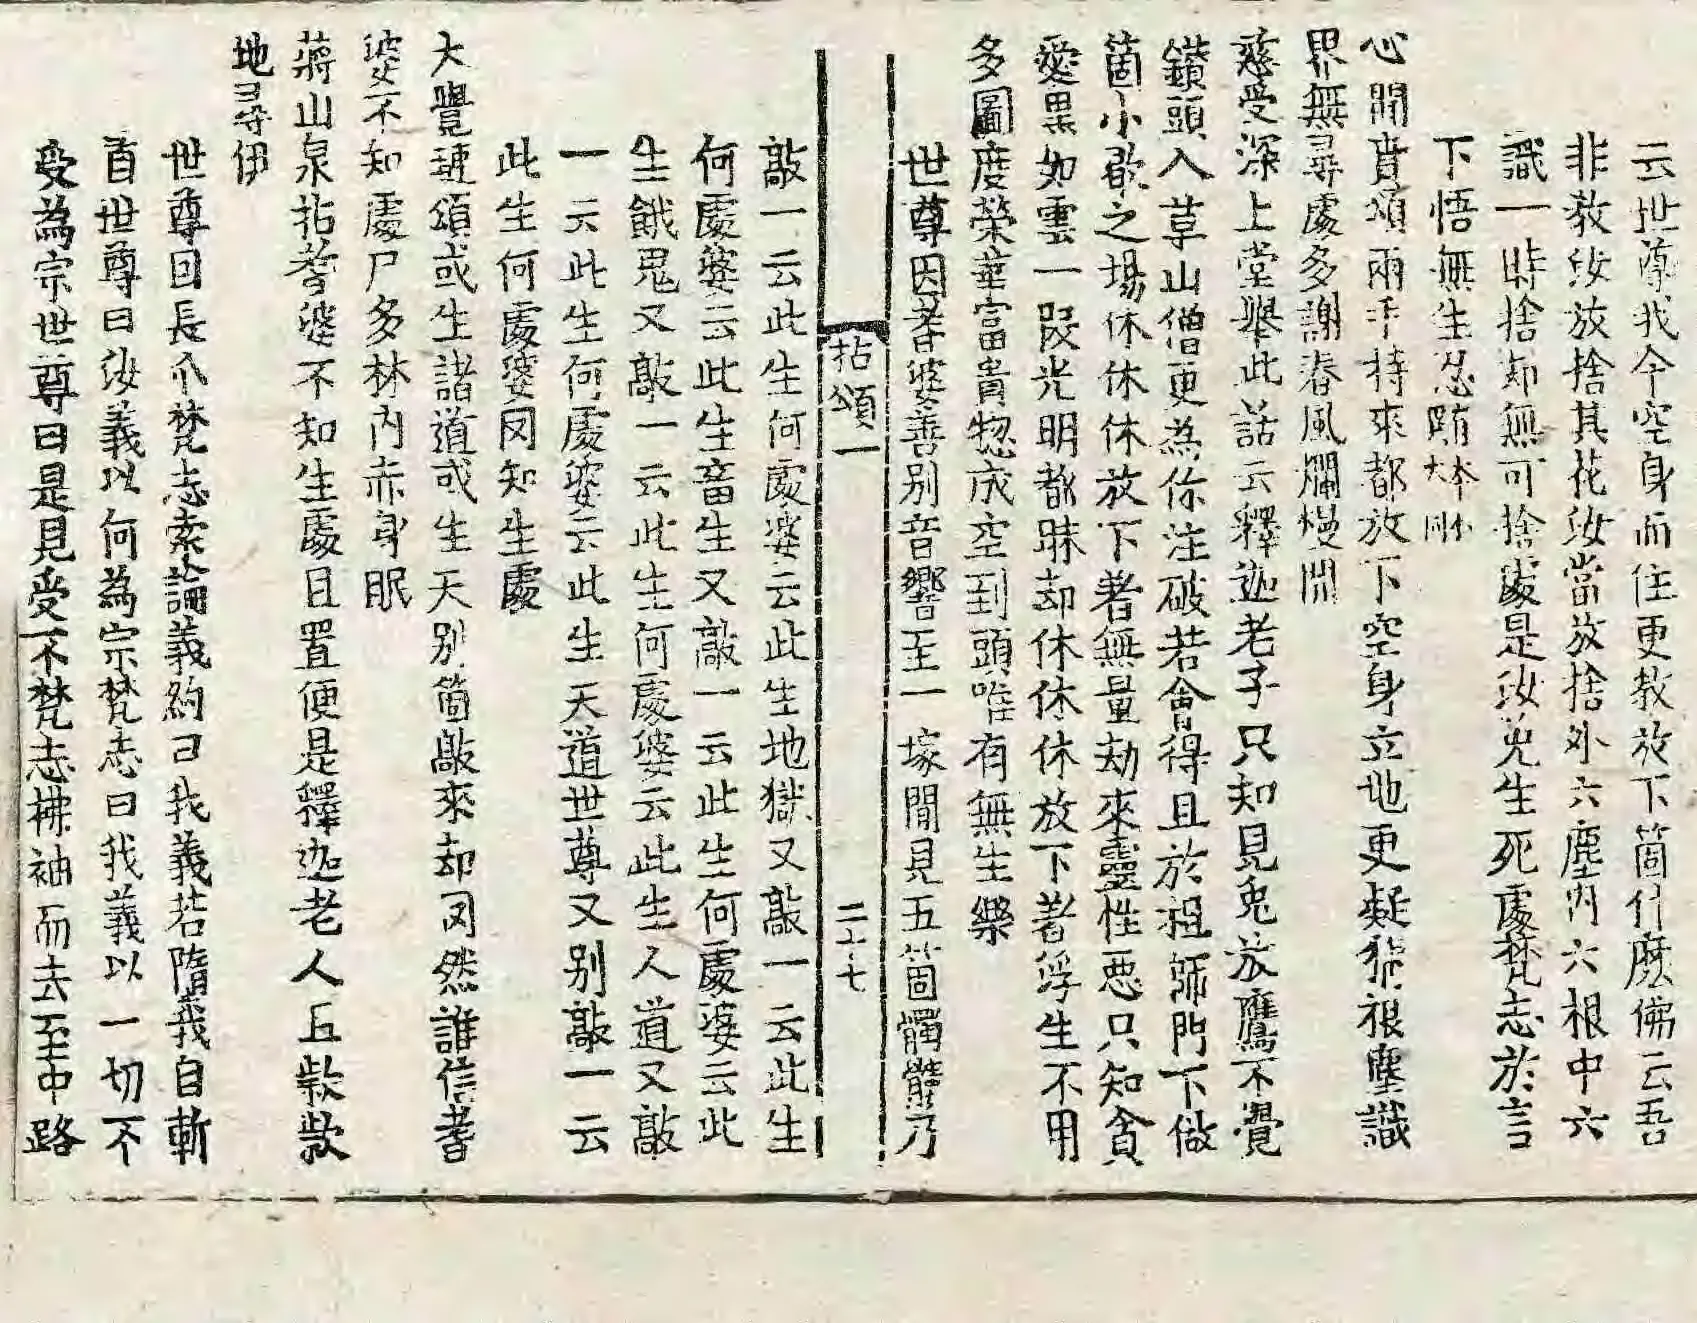 云世尊我今空身而住更教放下箇什麽佛云吾
非教汝放捨其花汝當放捨外六塵內六根中六
識一時捨却無可捨處是汝免生死處梵志於言
下悟無生忍
心聞賁頌兩手持來都放下空身立地更疑猜根塵識
界無尋處多謝春風爛熳開
慈受深上堂擧此話云釋迦老子只知見兎放鷹不覺
鑽頭入草山僧更為你注破若會得且於祖師門下做
箇小歇之場休休休放下著無量劫來靈性惡只知貪
愛黑如雲一段光明都昧却休休休放下著浮生不用
多圖度榮華富貴惣成空到頭唯有無生樂
世尊因耆婆善別音響至一塚間見五箇髑髏乃
拈頌一
二十七
敲一云此生何處婆云此生地獄又敲一云此生
何處婆云此生畜生又敲一云此生何處婆云此
生餓鬼又敲一云此生何處婆云此生人道又敲
一云此生何處婆云此生天道世尊又別敲一云
此生何處婆罔知生處
大覺璉頌或生諸道或生天別箇敲來却罔然誰信耆
婆不知處尸多林內赤身眠
蔣山泉拈耆婆不知生處且置便是釋迦老人五欵欵
地尋伊
世尊因長爪梵志索論義約曰我義若墮我自斬
首世尊曰汝義以何為宗梵志曰我義以一切不
受為宗世尊曰是見受不梵志拂袖而去至中路